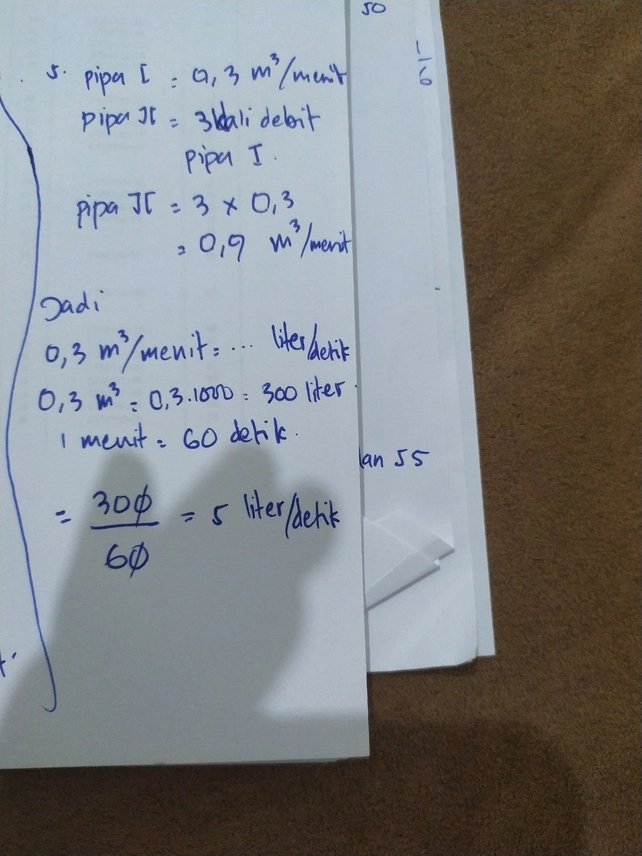 5. pipa I = 0,3 m³/menit
pipa II = 3 kali debit
pipa I.
pipa II = 3 x 0,3
= 0,9 m³/menit
Jadi
0,3 m³/menit = ... liter/detik
0,3 m³ = 0,3.1000 = 300 liter.
1 menit = 60 detik.
= 300/60 = 5 liter/detik
50
1/6
an 55